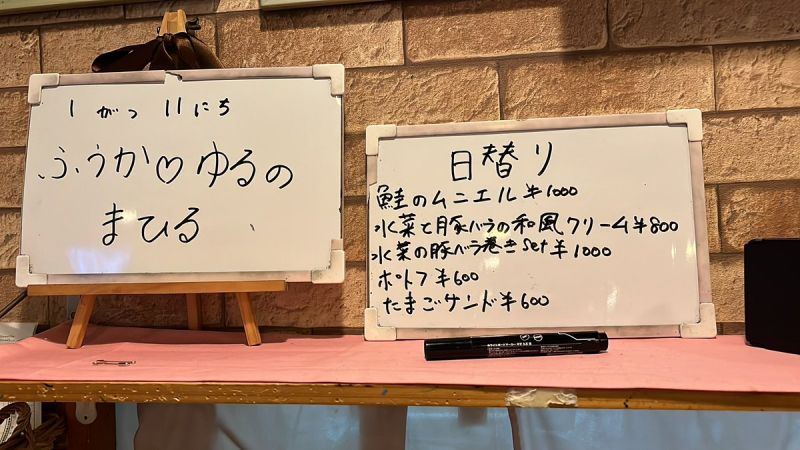 1がつ11にち
ふうか♡ゆるの
まひる
日替り
鮭のムニエル¥1000
水菜と豚バラの和風クリーム¥800
水菜の豚バラ巻きset¥1000
ポトフ¥600
たまごサンド¥600